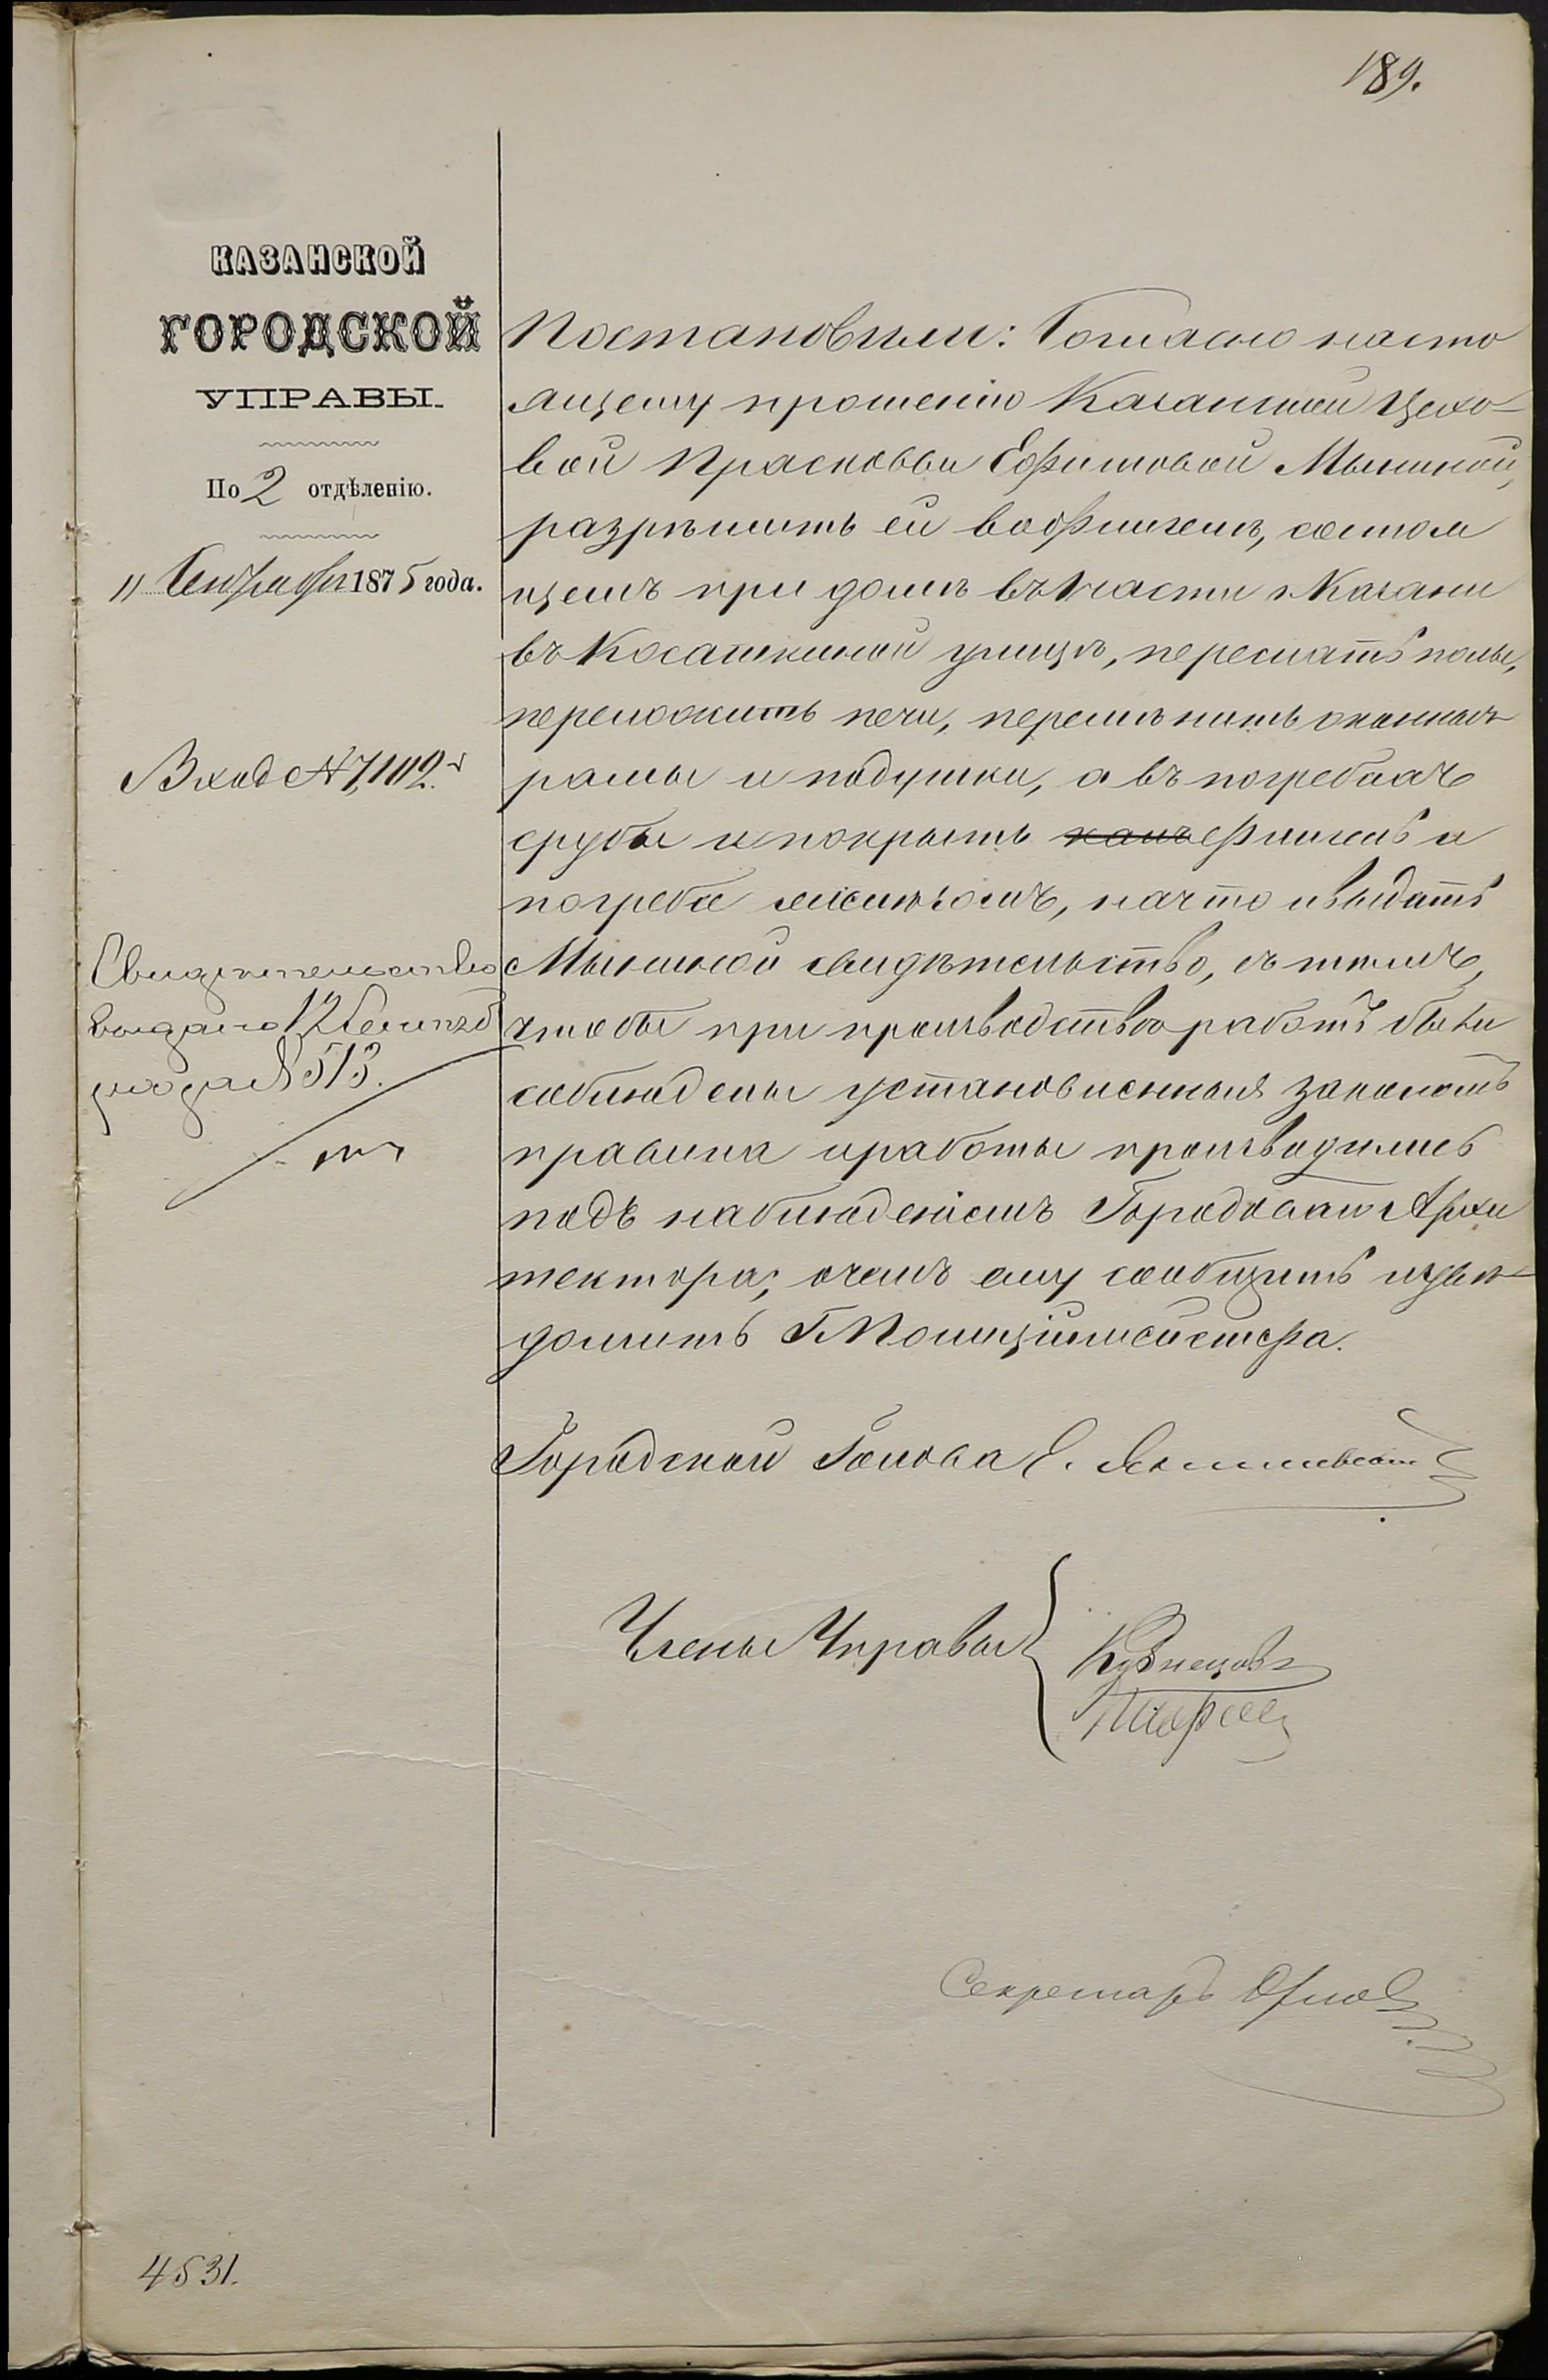 189.
КАЗАНСКОЙ
ГОРОДСКОЙ
УПРАВЫ.
По 2 отдѣленію.
11 Сентября 1875 года.
Вход №7,102.
Свидѣтельство
выдано 12 Сентяб
ря за №513.
Постановили: Согласно насто
ящему прошенію Казанской Цехо-
вой Прасковьи Ефимовой Мыниной,
разрѣшить ей во флигелѣ, состоя
щемъ при домѣ въ части г. Казани
въ Косаткиной улицѣ, переслать полы,
переложить печи, перемѣнить оконныя
рамы и подушки, а въ погребахъ
срубы и покрыть флигель и
погреба желѣзомъ, на что и выдать
Мыниной свидѣтельство, съ тѣмъ,
чтобы при производствѣ работъ были
соблюдены установленныя закономъ
правила и работы производились
подъ наблюденіемъ Городскаго Архи
тектора, о чемъ ему сообщить и увѣ-
домить Г. Полиціймейстера.
Городской Голова Э. Янишевскій
Члены Управы
Кузнецовъ
Секретарь Орлов
4531.